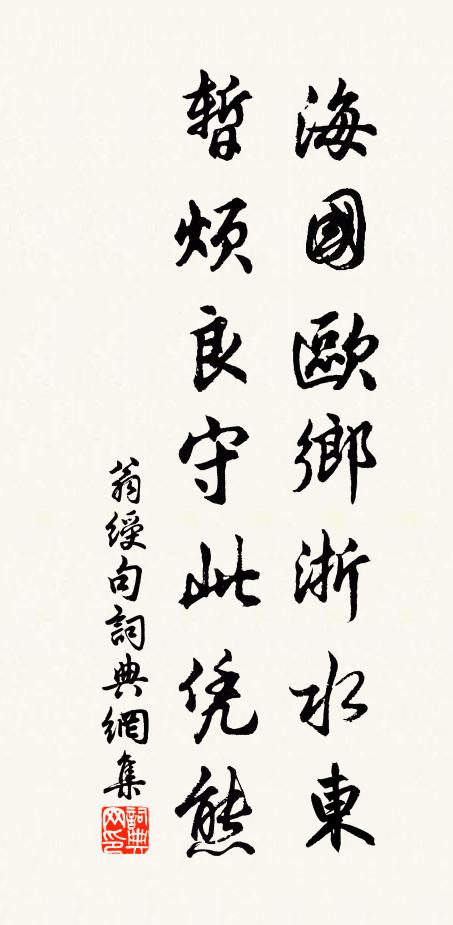 海國歐鄉浙水東
暫煩良守此凭熊
翁綬句詞典網集
詞典网印